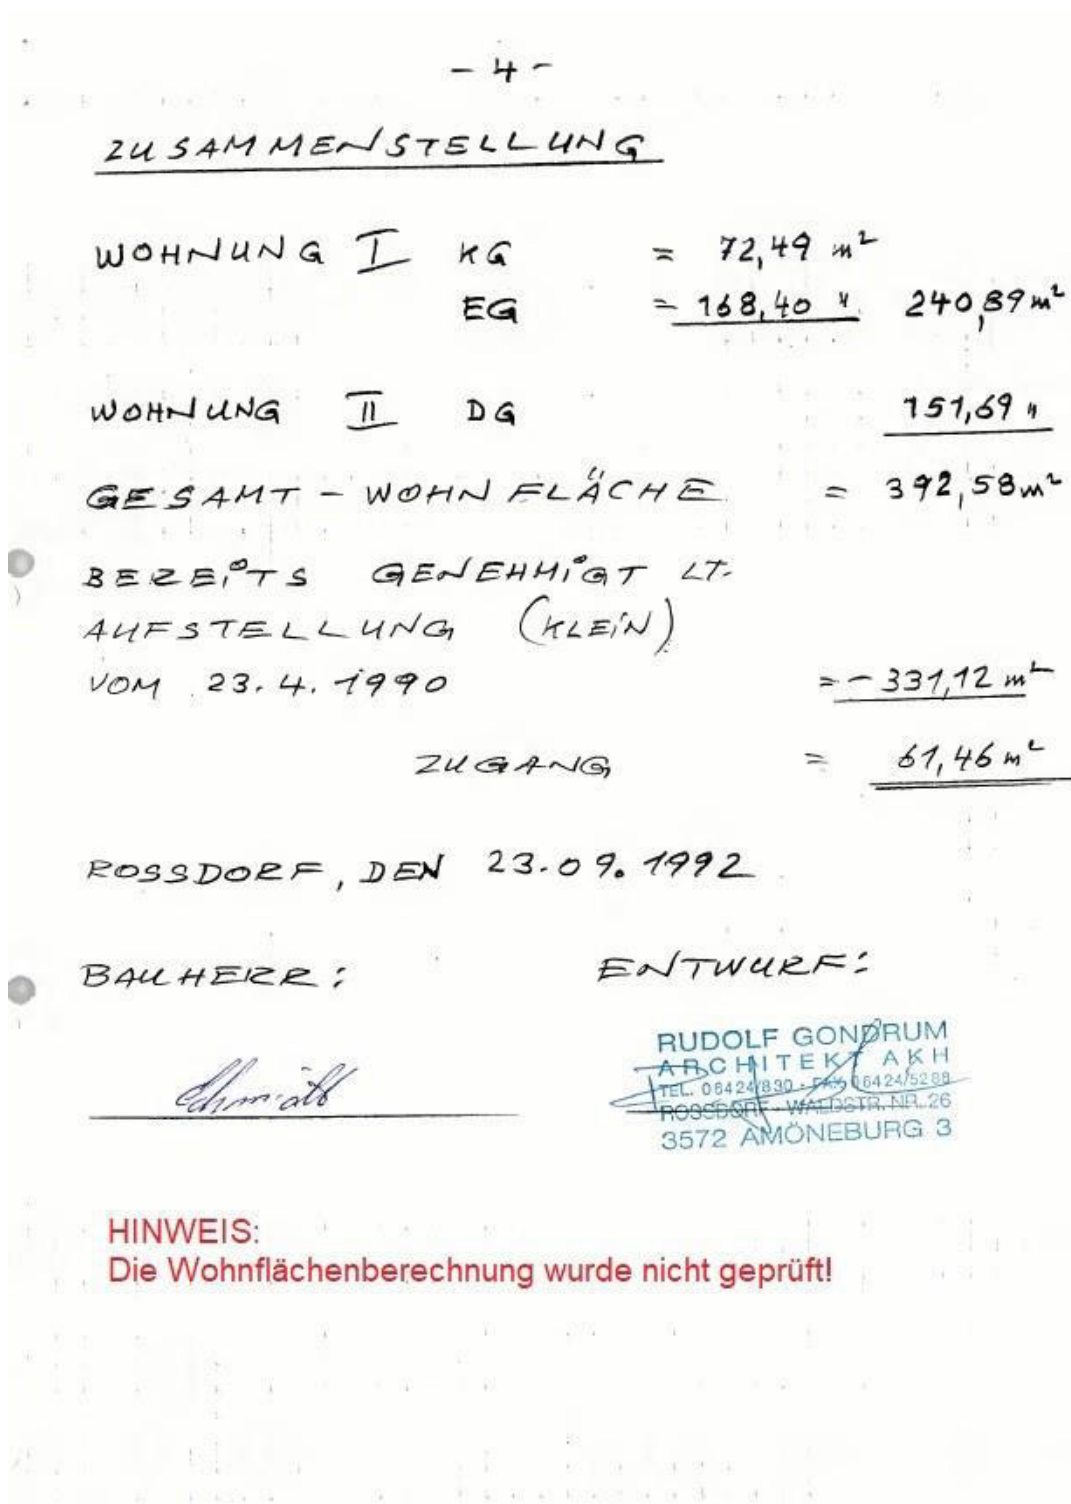 - 4 -
ZUSAMMENSTELLUNG
WOHNUNG I KG = 72,49 m²
EG = 168,40 " 240,89 m²
WOHNUNG II DG 151,69 "
GESAMT-WOHNFLÄCHE = 392,58 m²
BEREITS GENEHMIGT LT.
AUFSTELLUNG (KLEIN)
VOM 23.4.1990 = - 331,12 m²
ZUGANG = 61,46 m²
ROSSDORF, DEN 23.09.1992
BAUHERR: ENTWURF:
Schmidt
RUDOLF GONDRUM
ARCHITEKT AKH
TEL. 06424/830 - FAX 06424/5288
ROSSDORF - WALDSTR. NR. 26
3572 AMÖNEBURG 3
HINWEIS:
Die Wohnflächenberechnung wurde nicht geprüft!